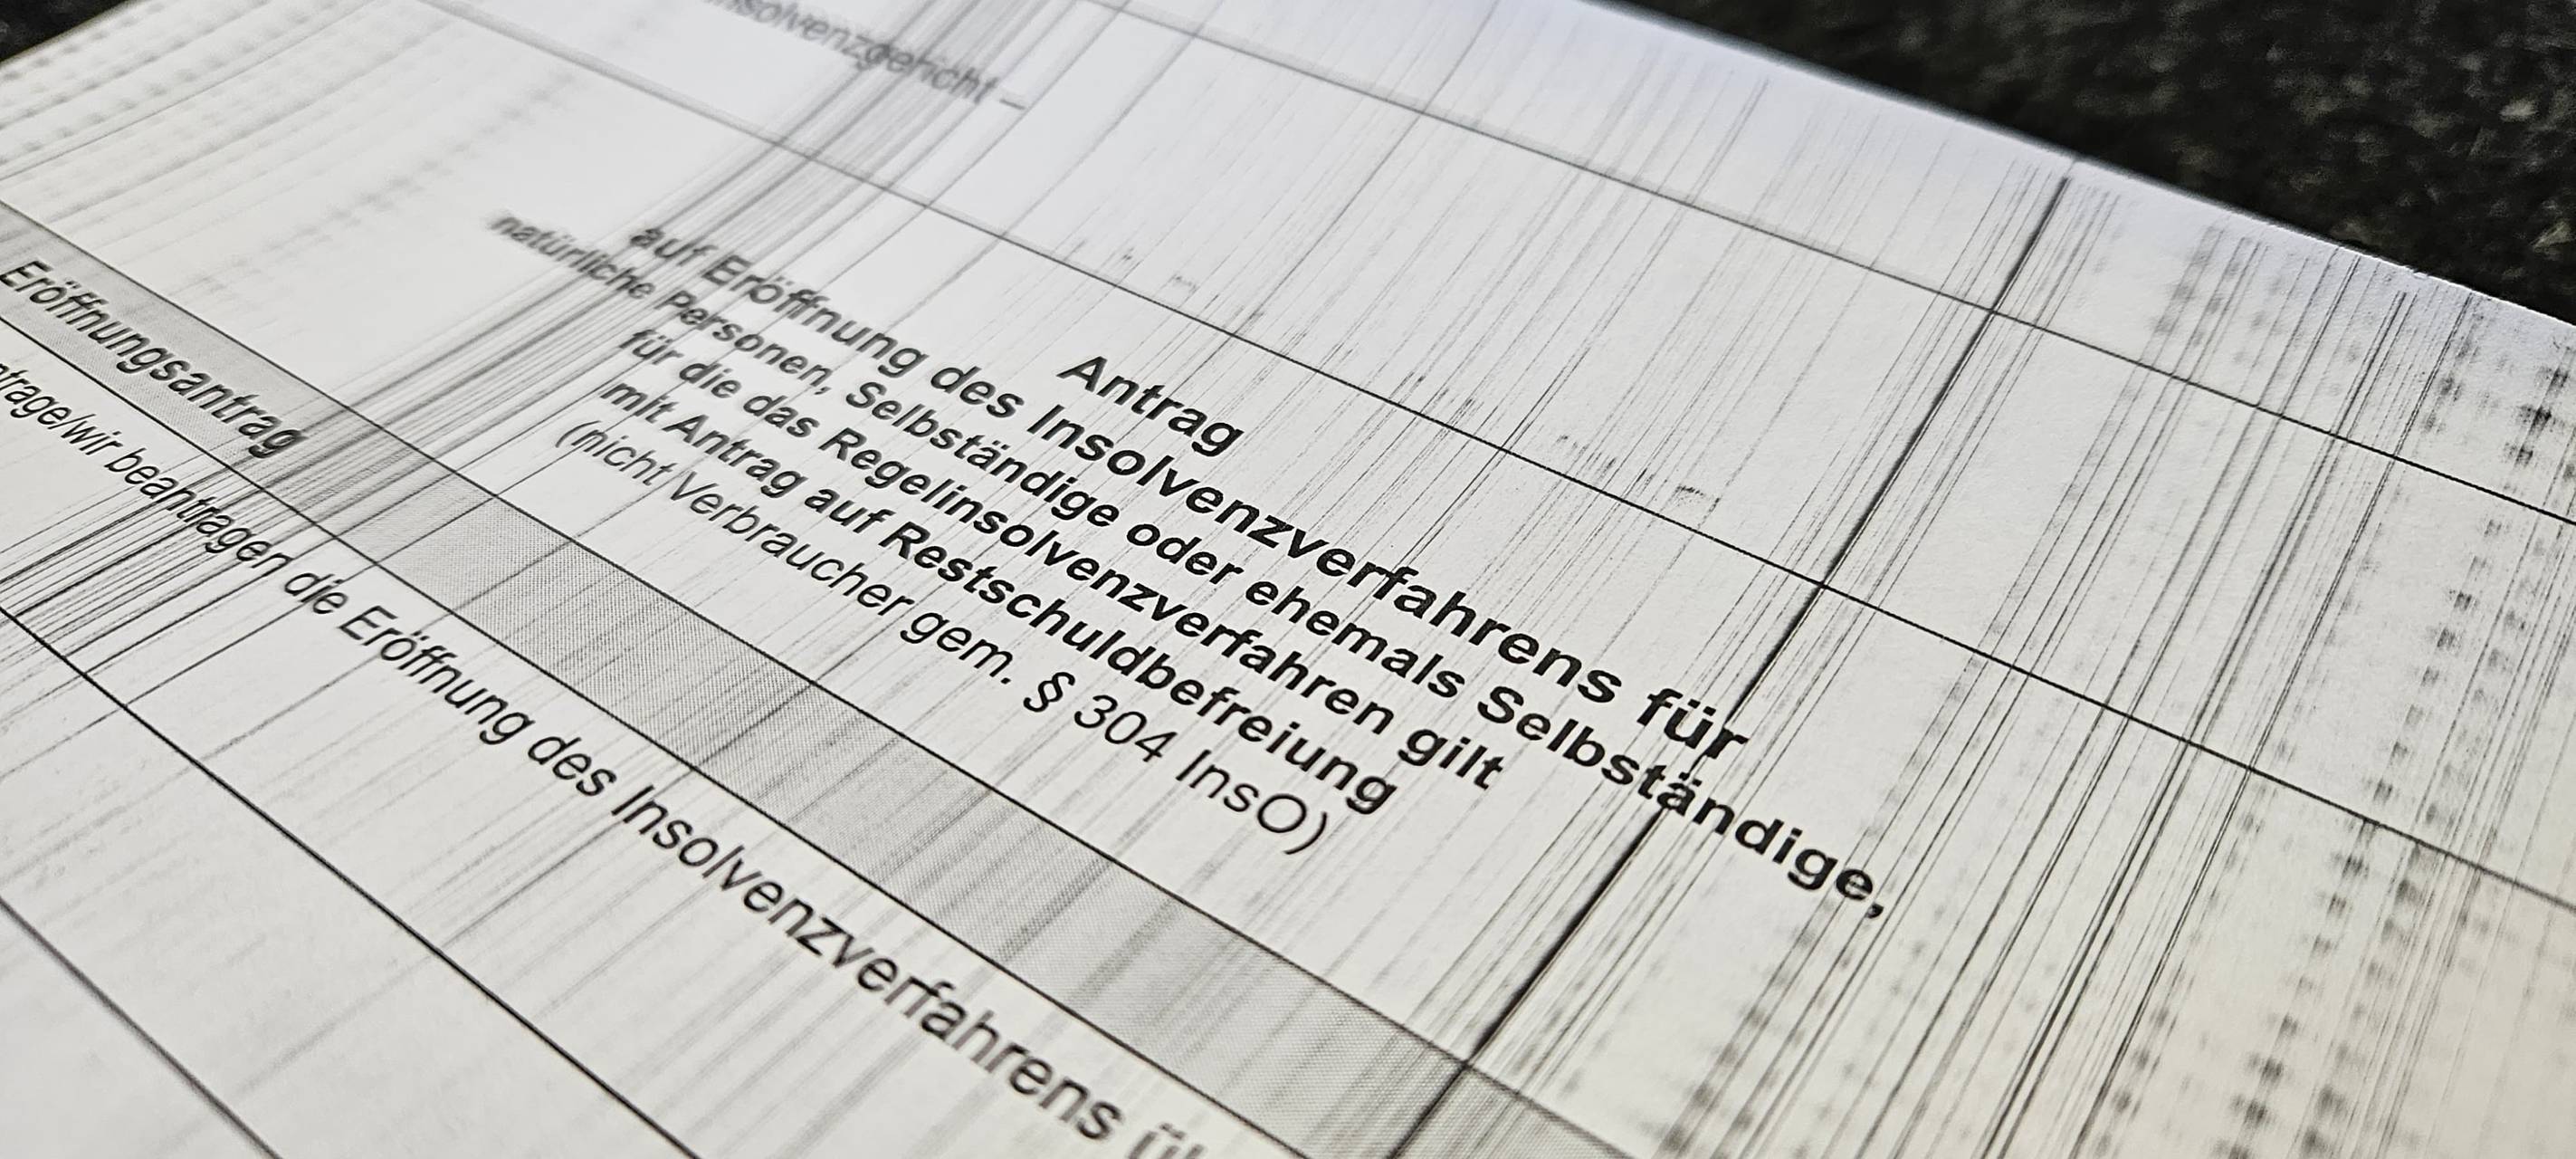 Insolvenzgericht –
Antrag
auf Eröffnung des Insolvenzverfahrens für
natürliche Personen, Selbständige oder ehemals Selbständige,
für die das Regelinsolvenzverfahren gilt
mit Antrag auf Restschuldbefreiung
(nicht Verbraucher gem. § 304 InsO)
Eröffnungsantrag
ntrage/wir beantragen die Eröffnung des Insolvenzverfahrens üb